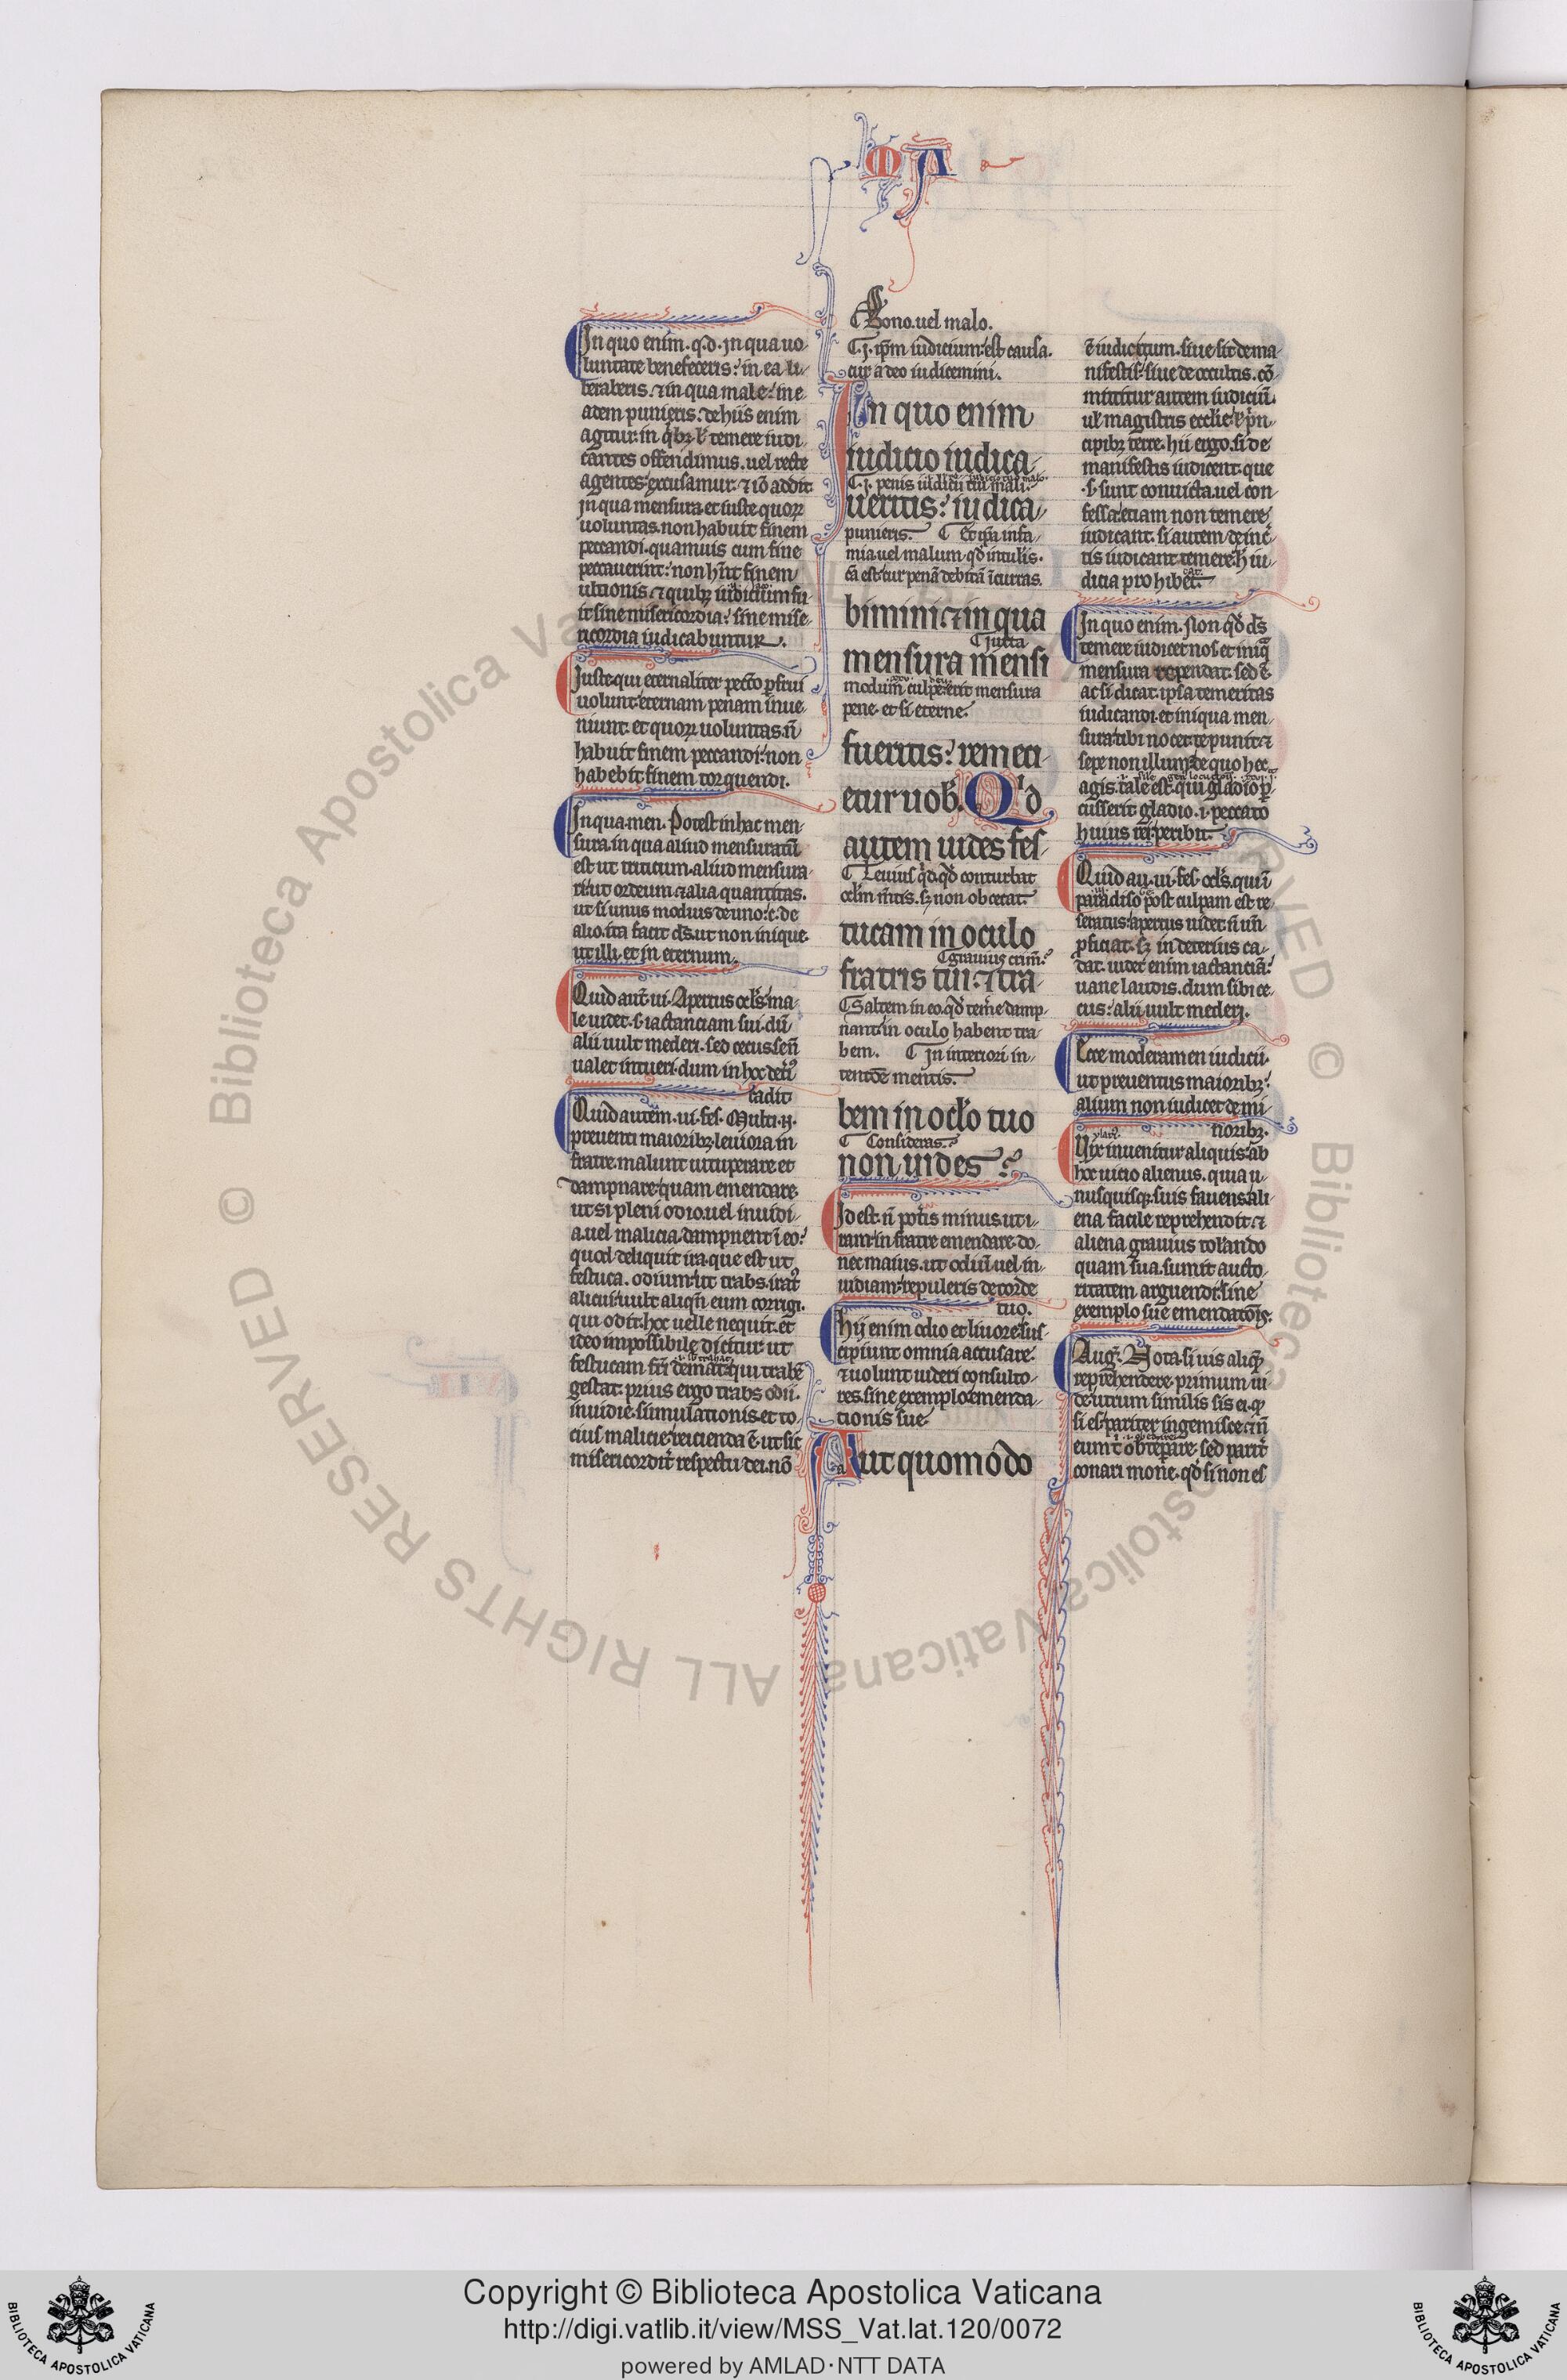 M A
In quo enim. q.d. in qua uo-
luntate benefeceris: in ea li-
beraberis. ⁊ in qua male: in e-
adem punieris. de hiis enim
agitur in qͥbꝫ ł temere iudi-
cantes offendimus. uel recte
agentes excusamur. ⁊ iō addit
in qua mensura. et iuste quoꝝ
uoluntas. non habuit finem
peccandi. quamuis cum fine
peccauerint: non hn̄t finem
ultionis. ⁊ quibꝫ iudicium fu-
it sine misericordia: sine mise-
ricordia iudicabuntur.
Iuste qui eternaliter pecc̄o ꝑfrui
uolunt eternam penam inue-
niunt. et quoꝝ uoluntas. n̄
habuit finem peccandi: non
habebit finem torquendi.
In qua. men. Potest in hac men-
sura. in qua aliud mensuratū
est ut triticum. aliud mensura-
ri: ut ordeum. ⁊ alia quantitas.
ut si unus modius de uno: c. de
alio. ita facit ds̄. ut non inique.
ut illi. et in eternum.
Quid aut̄. ui. Apertus ocl̄s. ma-
le uidet. s. iactanciam sui. dū
alii uult mederi. sed cecus. sen̄
ualet intueri. dum in hoc det̓i᷒
cadit
Quid autem. ui. fes. Multi. n.
preuenti maioribꝫ. leuiora in
fratre malunt uituperare et
dampnare: quam emendare.
ut si pleni odio. uel inuidi-
a. uel malicia. dampnent ī eo:
quod deliquit ira. que est ut
festuca. odium: ut trabs. irat᷒
alicui: uult aliqn̄ eum corrigi.
qui odit: hoc uelle nequit. et
ideo impossibile dicitur ut
festucam frī demat: qui trabē
gestat. prius ergo trabs odii.
inuidie. simulationis. et to-
cius malicie: reicienda ē. ut sic
misericordit̓ respectu dei. nō
Bono. uel malo.
.i. ip̄m iudicium: est causa.
cur a deo iudicemini.
In quo enim
iudicio iudica-
ueritis: iudica-
punieris. Et ip̄a infa-
mia uel malum. qd̄ intulis.
cā est: cur penā debitā īcurras.
bimini: ⁊ in qua
iuxta
mensura mensi
modum culpe: erit mensura
pene. et si eterne.
fueritis: remeci-
etur uob̄. Qͥd
autem uides fes-
Leuius qͥd. qd̄ conturbat
ocl̄m m̄tis. sꝫ non obcecat.
tucam in oculo
grauius crim̄.
fratris tui: ⁊ tra-
Saltem in eo. qd̄ tem̓e damp-
nant: in oculo habent tra-
bem. In interiori in-
tentōe mentis.
bem in oclo tuo
Consideras.
non uides?
Id est: n̄ pot̓is minus. ut i-
ram: in fratre emendare. do-
nec maius. ut odiū. uel in-
uidiam: repuleris de corde
tuo.
Hij enim odio et liuore sus-
cipiunt omnia accusare.
⁊ uolunt uideri consulto-
res. sine exemplo emenda-
tionis sue.
Aut quomodo
ē iudicium. siue sit de ma-
nifestis: siue de occultis. cō-
mittitur autem iudiciū.
uł magistris ecclīe: ł pͥn-
cipibꝫ terre. hii ergo. si de
manifestis iudicent. que
.s. sunt conuicta. uel con-
fessa: etiam non temere
iudicant. si autem de inc̓-
tis iudicant: temere. h̄ iu-
dicia prohibet.
In quo enim. Non qd̄ ds̄
temere iudicet nos. et iniq̄
mensura rependat. sed ē.
ac si dicat. ipsa temeritas
iudicandi. et iniqua men-
sura: tibi nocet. te punit: ⁊
sepe non illum: de quo hec
agis. tale est: qui gladio ꝑ-
cusserit gladio .i. peccato
huius rei. peribit.
Quid au. ui. fes. ocl̄s. qui ī
paradiso post culpam est re-
seratus: apertus uidet. n̄ un̄
ꝓficiat. sꝫ in deterius ca-
dat. uidet enim iactanciā:
uane laudis. dum sibi ce-
cus: alii uult mederi.
Ecce moderamen iudicii.
ut preuentus maioribꝫ:
alium non iudicet de mi-
noribꝫ.
Vix inuenitur aliquis: ab
hoc uicio alienus. quia u-
nusquisqꝫ. suis fauens: ali-
ena facile reprehendit. ⁊
aliena grauius tol̓ando
quam sua. sumit aucto-
ritatem arguendi: sine
exemplo sue emendatōis.
Aug᷒. Nota. si uis aliqͤꝫ
reprehendere. primum ui-
de utrum similis sis ei. qͩ
si es: pariter ingemisce. ⁊ n̄
eum t̓ obtēꝑare. sed parit̓
conari mone. qd̄ si non es
Copyright © Biblioteca Apostolica Vaticana
http://digi.vatlib.it/view/MSS_Vat.lat.120/0072
powered by AMLAD·NTT DATA
BIBLIOTECA APOSTOLICA VATICANA
BIBLIOTECA APOSTOLICA VATICANA